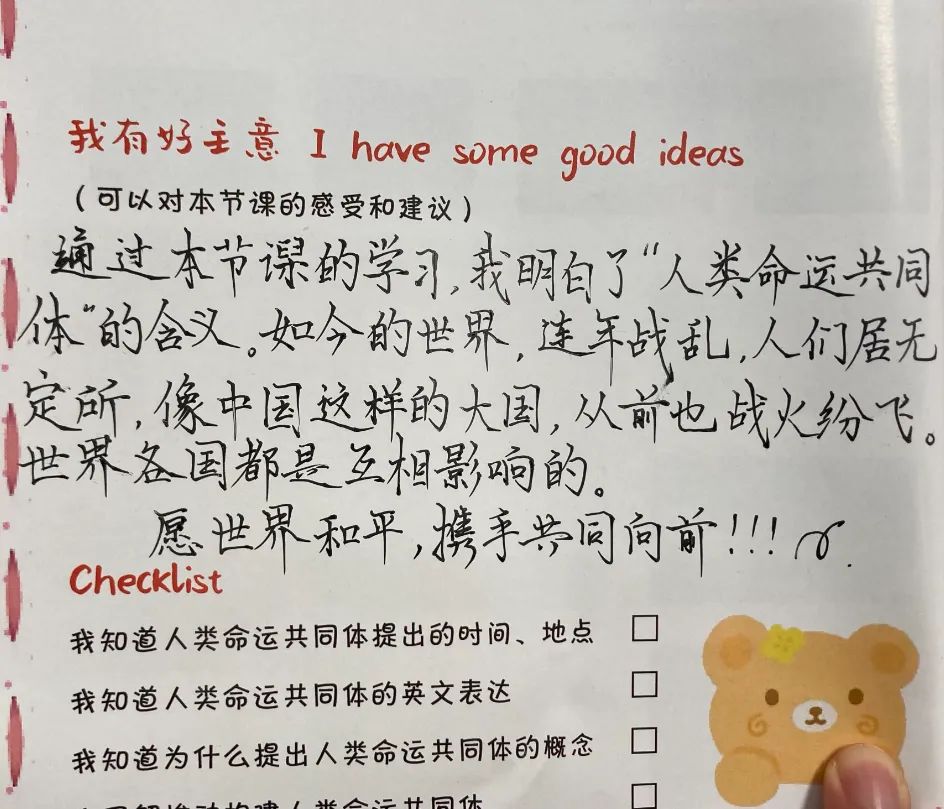 我有好主意 I have some good ideas
（可以对本节课的感受和建议）
通过本节课的学习，我明白了“人类命运共同
体”的含义。如今的世界，连年战乱，人们居无
定所，像中国这样的大国，从前也战火纷飞。
世界各国都是互相影响的。
愿世界和平，携手共同向前！！！
Checklist
我知道人类命运共同体提出的时间、地点
我知道人类命运共同体的英文表达
我知道为什么提出人类命运共同体的概念
构建人类命运共同体